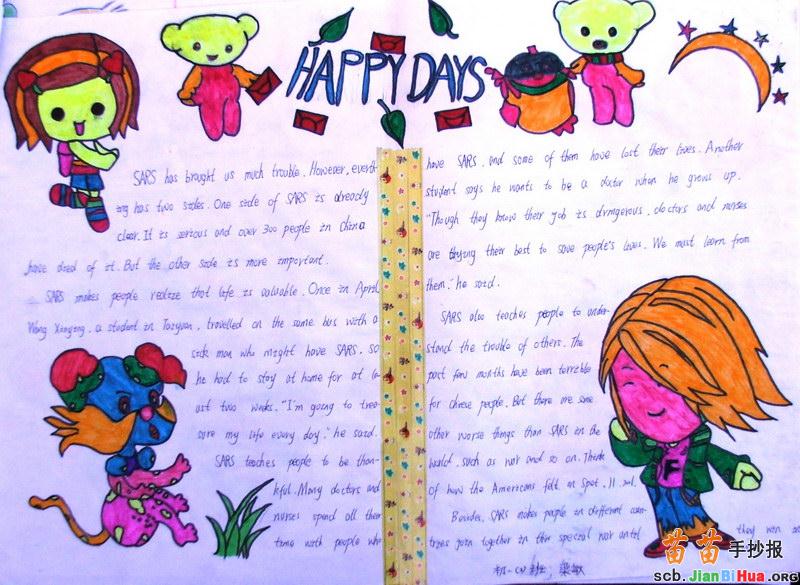 HAPPY DAYS
SARS has brought us much trouble. However, everth-
ing has two sides. One side of SARS is already
clear. It is serious and over 300 people in China
have died of it. But the other side is more important.
SARS makes people realize that life is valuable. Once in April
Wang Xongying, a student in Taiyuan, travelled on the same bus with a
sick man who might have SARS, so
he had to stay at home for at le-
ast two weeks. "I'm going to trea-
sure my life every day," he said.
SARS teaches people to be than-
kful. Many doctors and
nurses spend all their
time with people who
have SARS, and some of them have lost their lives. Another
student says he wants to be a doctor when he grows up.
"Though they know their job is dangerous, doctors and nurses
are trying their best to save people's lives. We must learn from
them," he said.
SARS also teaches people to under-
stand the trouble of others. The
past few months have been terrible
for chinese people. But there are some
other worse things than SARS in the
world, such as war and so on. Think
of how the Americans felt on Spet. 11. 2001.
Besides, SARS makes people in different coun-
tries join together in this special war until
they win
初一(4)班
苗苗手抄报
scb.JianBiHua.org